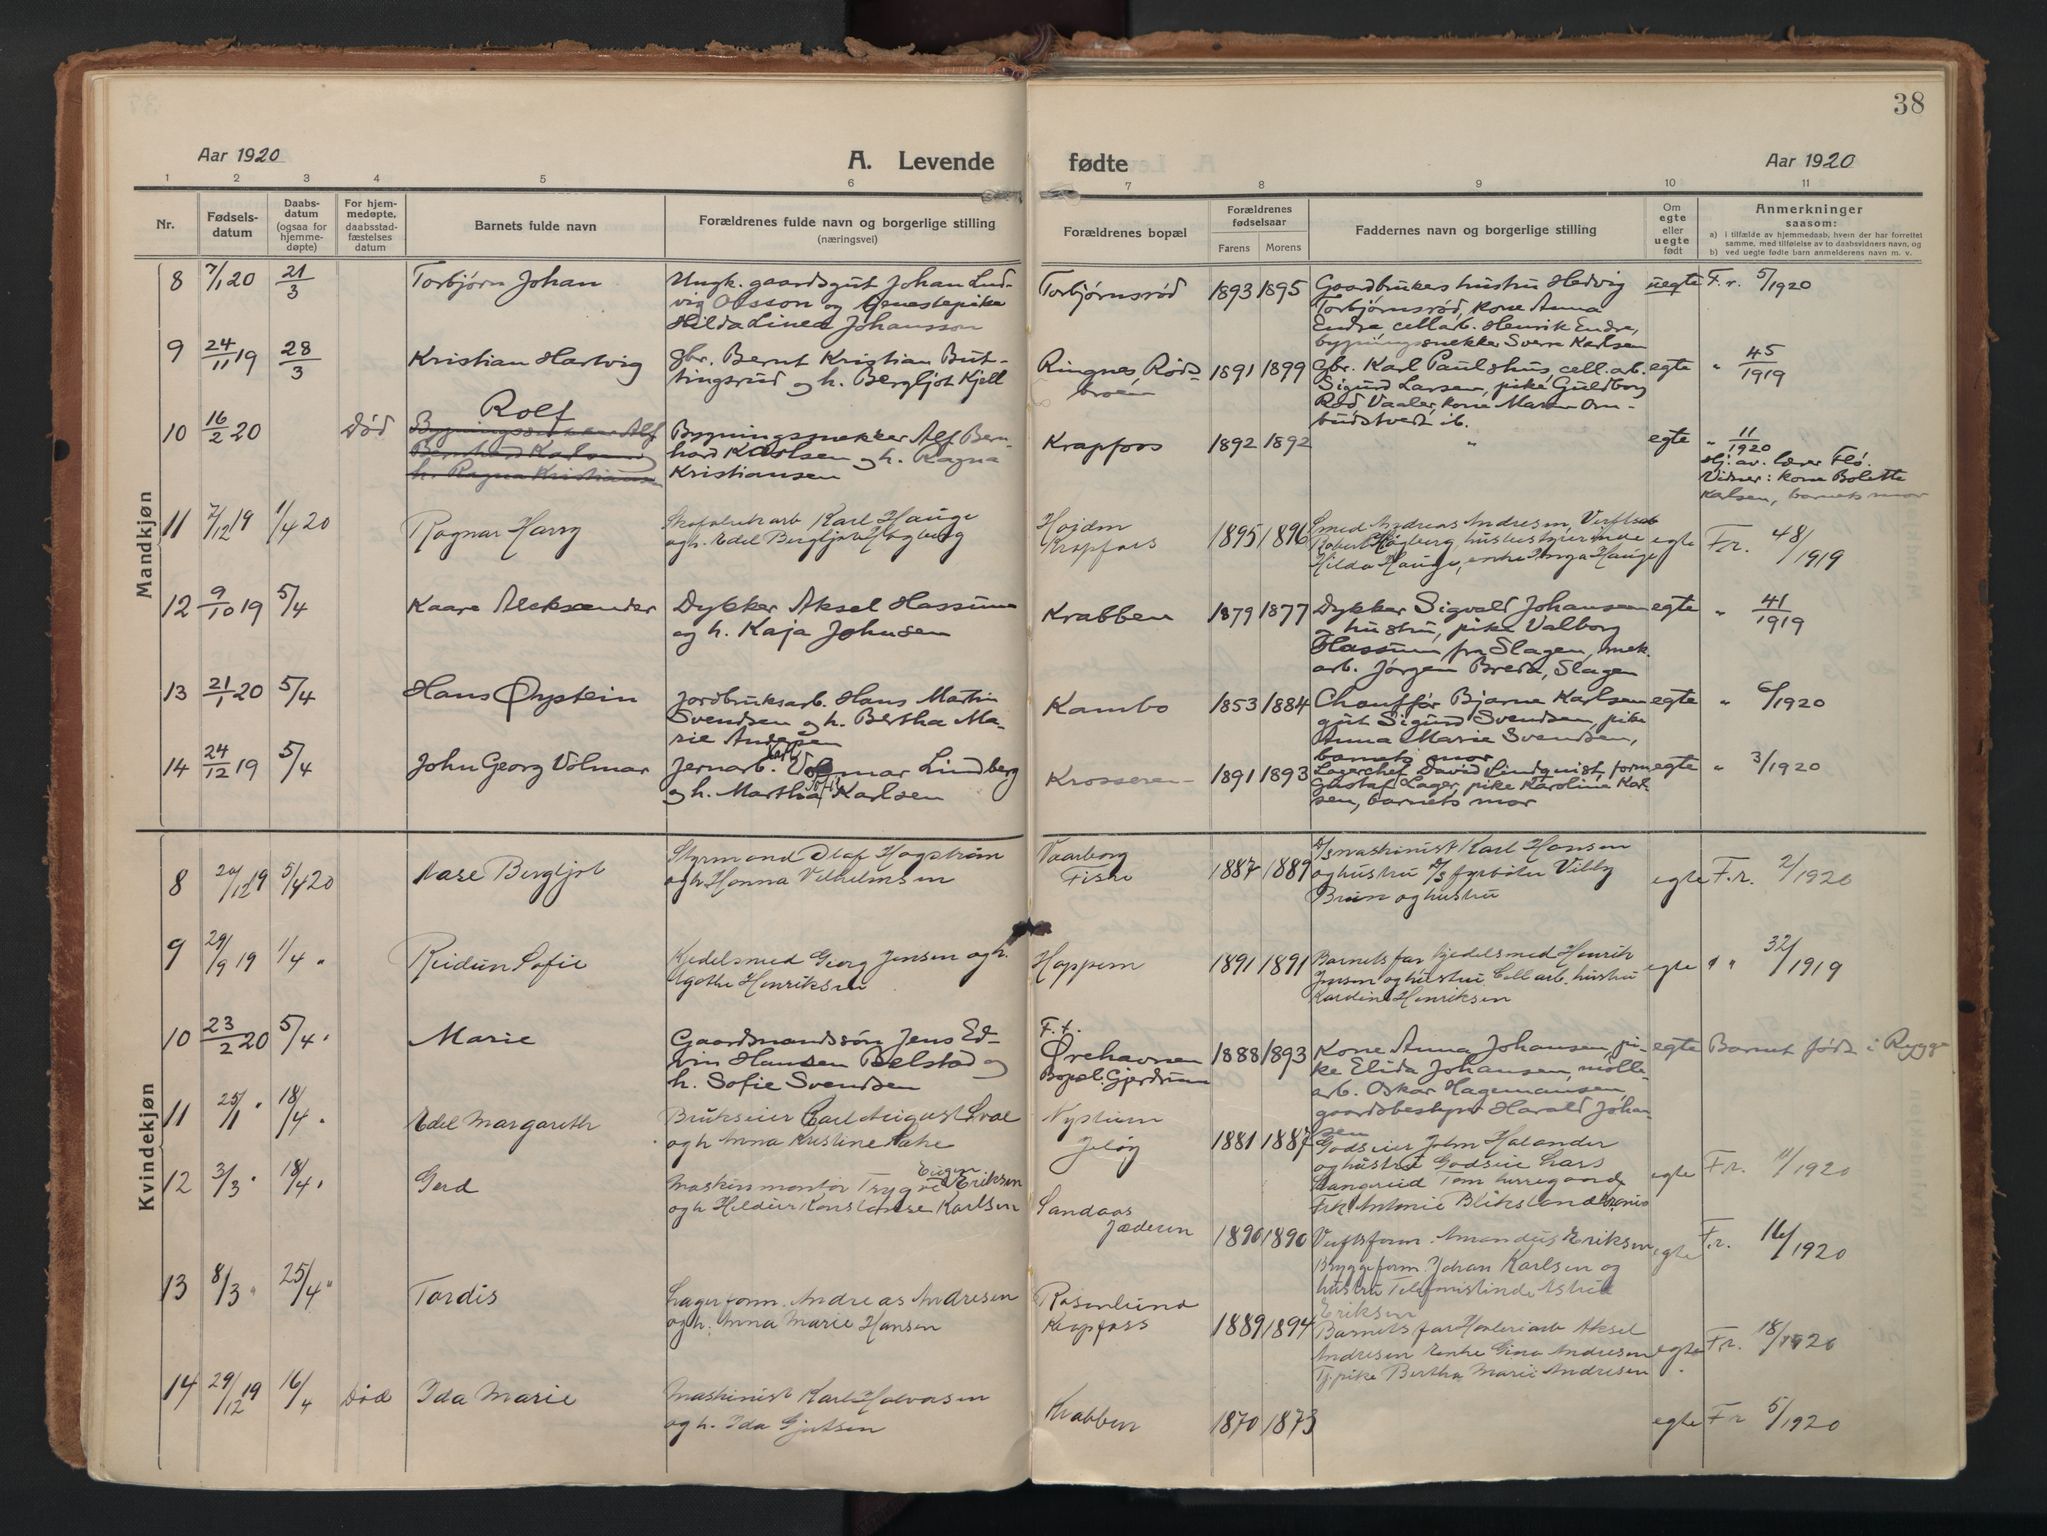 38
Aar 1920
A. Levende
fødte
Aar 1920
1 2 3 4 5 6 7 8 9 10 11
Nr.
Fødsels-
datum
Daabs-
datum
(ogsaa for
hjemme-
døpte)
For hjem-
medøpte,
daabsstad-
fæstelses
datum
Barnets fulde navn
Forældrenes fulde navn og borgerlige stilling
(næringsvei)
Forældrenes bopæl
Forældrenes
fødselsaar
Farens Morens
Faddernes navn og borgerlige stilling
Om
egte
eller
uegte
født
Anmerkninger
saasom:
a) i tilfælde av hjemmedaab, hvem der har forrettet
samme, med tilføielse av to daabsvidners navn, og
b) ved uegte fødte barn anmelderens navn m. v.
Mandkjøn
8 7/1 20 21/3 Torbjørn Johan
Ungk. gaardsgut Johan Lud-
vig Olsson og tjenestepike
Hilda Linea Johansson
Torbjørnsrød 1893 1895
Gaardbrukers hustru Hedvig
Torbjørnsrød, kone Anna
Endre, cell.arb. Henrik Endre,
bygningssnekker Sverre Karlsen
uegte F.r. 5/1920
9 24/11 19 28/3 Kristian Hartvig
gbr. Bernt Kristian But-
tingsrud og h. Bergljot Kjell
Ringnes, Røds-
broen
1891 1899
gbr. Karl Paulshus, cell.arb.
Sigurd Larsen, pike Guldborg
Rød Vaaler, kone Maren Om-
budstvedt ib.
egte " 45/1919
10 16/2 20 Død
Rolf
Bygningssnekker Alf
Bernhard Karlsen og
h. Ragna Kristiansen
Bygningssnekker Alf Bern-
hard Karlsen og h. Ragna
Kristiansen
Krapfoss 1892 1892 " egte " 11/1920
Hj. av. lærer Flø.
Vidner: kone Bolette
Karlsen, barnets mor
11 7/12 19 1/4 20 Ragnar Harry
Skofabrikarb Karl Hauge
og h. Edel Bergljot Høgberg
Højden
Krapfoss
1895 1896
Smed Andreas Andresen, Verftsab
Robert Høgberg, hustru
Hilda Hauge, enke Inga Hauge
egte F.r. 48/1919
12 9/10 19 5/4 Kaare Aleksander
Dykker Aksel Hassum
og h. Kaja Johnsen
Krabben 1879 1877
Dykker Sigvald Johansen
og hustru, pike Valborg
Hassum fra Slagen, mek.
arb. Jørgen Breda, Slagen
egte " 41/1919
13 21/1 20 5/4 Hans Øystein
Jordbruksarb. Hans Martin
Svendsen og h. Bertha Ma-
rie Andersen
Kambo 1853 1884
Chauffør Bjarne Karlsen
gut Sigurd Svendsen, pike
Anna Marie Svendsen,
barnets mor
egte " 6/1920
14 24/12 19 5/4 John Georg Volmar
Jernarb. Karl Volmar Lindberg
og h. Martha Sofie Karlsen
Krosseren 1891 1893
Lagerchef David Lindqvist, form
Gustaf Lager, pike Karoline Karl-
sen, barnets mor
egte " 3/1920
Kvindekjøn
8 20/12 19 5/4 20 Aase Bergljot
Styrmand Olaf Hagstrøm
og h Hanna Vilhelmsen
Vaarborg
Fiske
1887 1889
D/S maskinist Karl Hansen
og hustru D/S fyrbøter Vilby
Bruun og hustru
egte F.r. 2/1920
9 29/9 19 1/4 " Reidun Sofie
Kjedelsmed Georg Jensen og h.
Agathe Henriksen
Hoppern 1891 1891
Barnets far kjedelsmed Henrik
Jensen og hustru Cell arb. hustru
Karoline Henriksen
egte " " 32/1919
10 23/2 20 5/4 " Marie
Gaardmandssøn Jens Ed-
vin Hansen Belstad og
h. Sofie Svendsen
F. t.
Ørehavnen
Bopæl: Gjerdrum
1888 1893
Kone Anna Johansen, pi-
ke Elida Johansen, mölle-
arb. Oskar Hagemansen
gaardsbestyrer Harald Johan
sen
egte Barnet født i Rygge
11 25/1 " 18/4 " Edel Margareth
Brukseier Carl August Svae
og h Anna Kristine Aahe
Nystuen
Jeløy
1881 1887
Godseier John Halander
og hustru Godseier Lars
Langerud Tom herregaard
Frk. Antonie Blikstand
egte F.r. 11/1920
12 3/3 " 18/4 " Gerd
Maskinmontør Trygve Eugen Eriksen
og h Heldur Konstanse Karlsen
Sandaas
Jæderen
1890 1890
Verftsform. Amandus Eriksen
Bryggeform. Johan Karlsen og
hustru Telefonistinde Astrid
Eriksen
egte F.r. 16/1920
13 8/3 " 25/4 " Tordis
Lagerform. Andreas Andresen
og h. Anna Marie Hansen
Rosenlund
Krapfoss
1889 1894
Barnets far Høvleriarb Aksel
Andresen Enke Gina Andresen
Tj.pike Bertha Marie Andresen
egte F.r. 18/1920
14 29/12 19 16/4 Død Ida Marie
Maskinist Karl Halvorsen
og h. Ida Gjutsen
Krabben 1870 1873 egte F r 5/1920